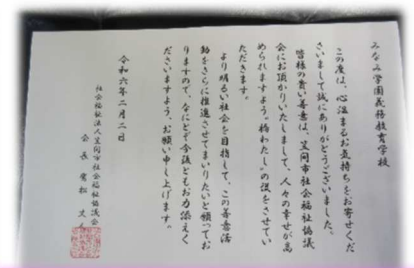 みなみ学園義務教育学校
この度は、心温まるお気持ちをお寄せくだ
さいまして誠にありがとうございました。
皆様の貴い善意は、笠間市社会福祉協議
会にお預かりいたしまして、人々の幸せが高
められますよう〝橋わたし〟の役をさせてい
ただきます。
より明るい社会を目指して、この善意活
動をさらに推進させてまいりたいと願ってお
りますので、なにとぞ今後ともお力添えく
ださいますよう、お願い申し上げます。
令和六年二月二日
社会福祉法人笠間市社会福祉協議会
会長 常松